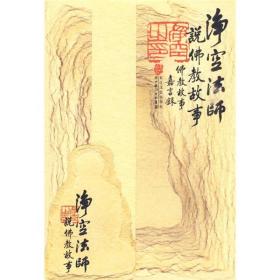 淨空法師
説佛教故事
佛教故事
嘉言錄
淨空法師
説佛教故事